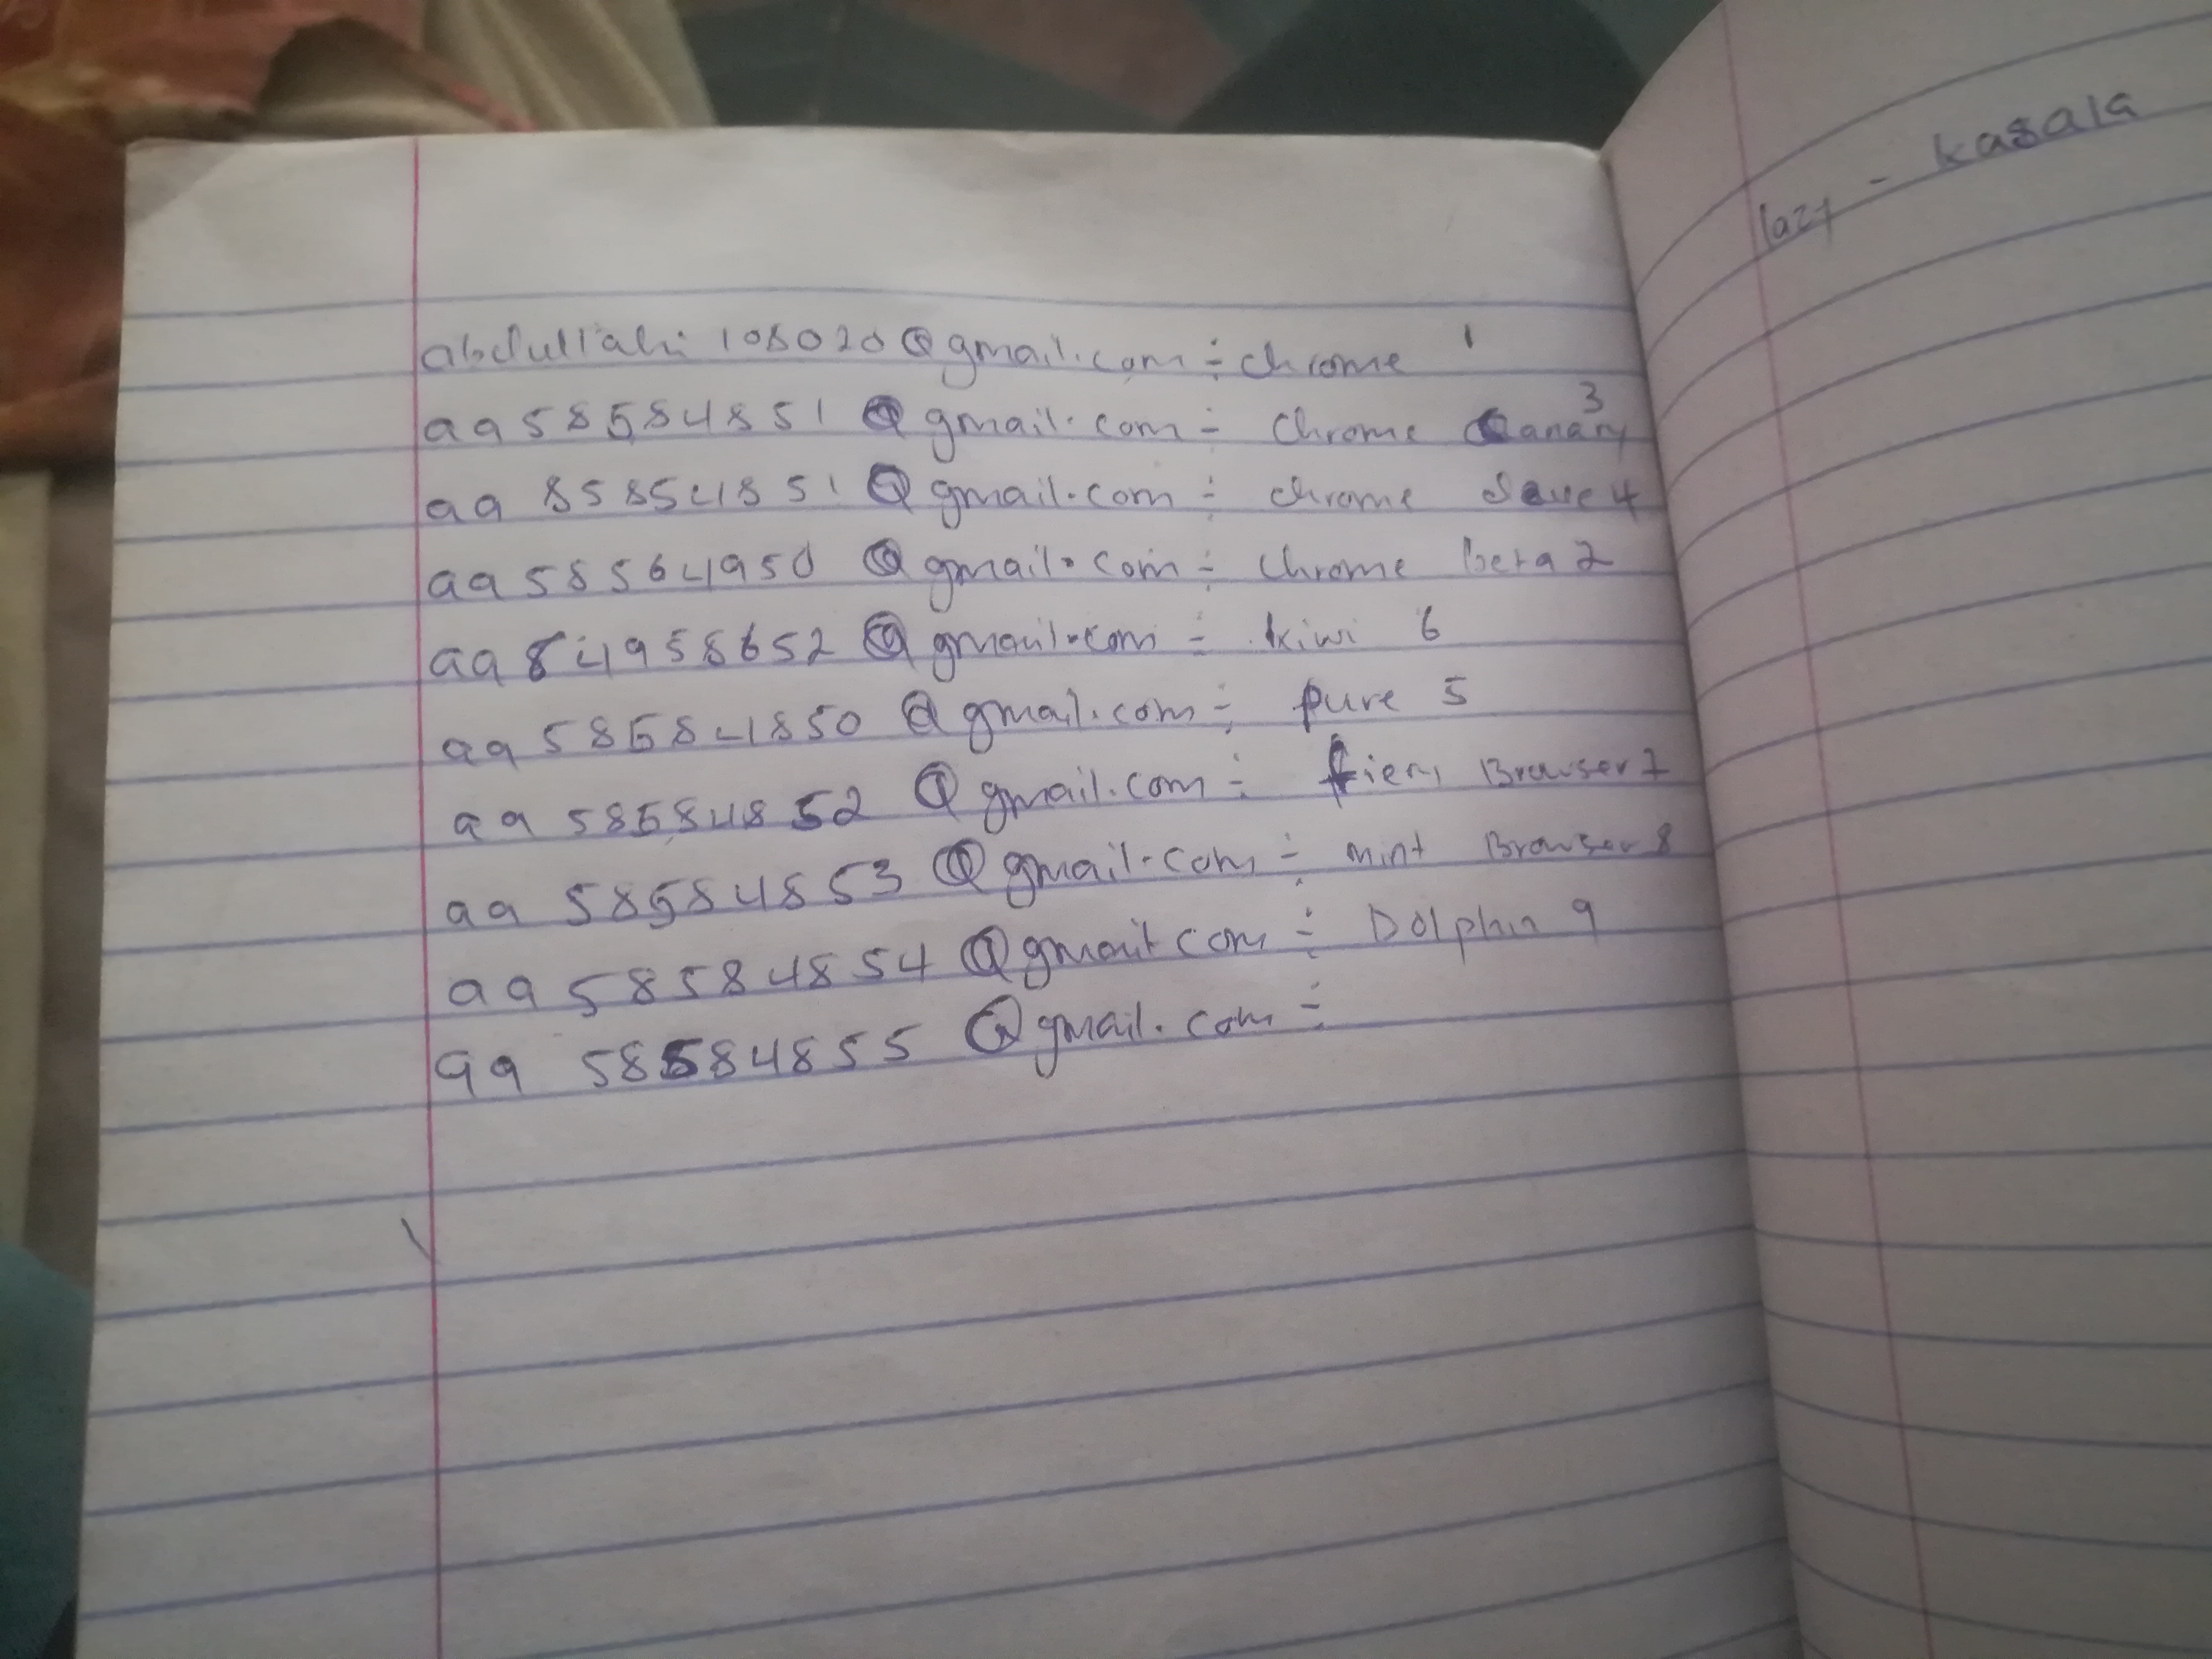 abdullahi 108020@gmail.com÷chrome 1
aa58584851@gmail.com÷ chrome Canary 3
aa 85854851@gmail.com÷ chrome 4
aa58564950 @gmail.com÷ chrome beta 2
aa84958652@gmail.com ÷ kiwi 6
aa 58584850 @gmail.com÷ pure 5
aa 58584852 @gmail.com÷ Browser 7
aa 58584853 @gmail.com÷ mint Browser 8
aa 58584854 @gmail com÷ Dolphin 9
aa 58584855 @gmail.com÷
- kasala